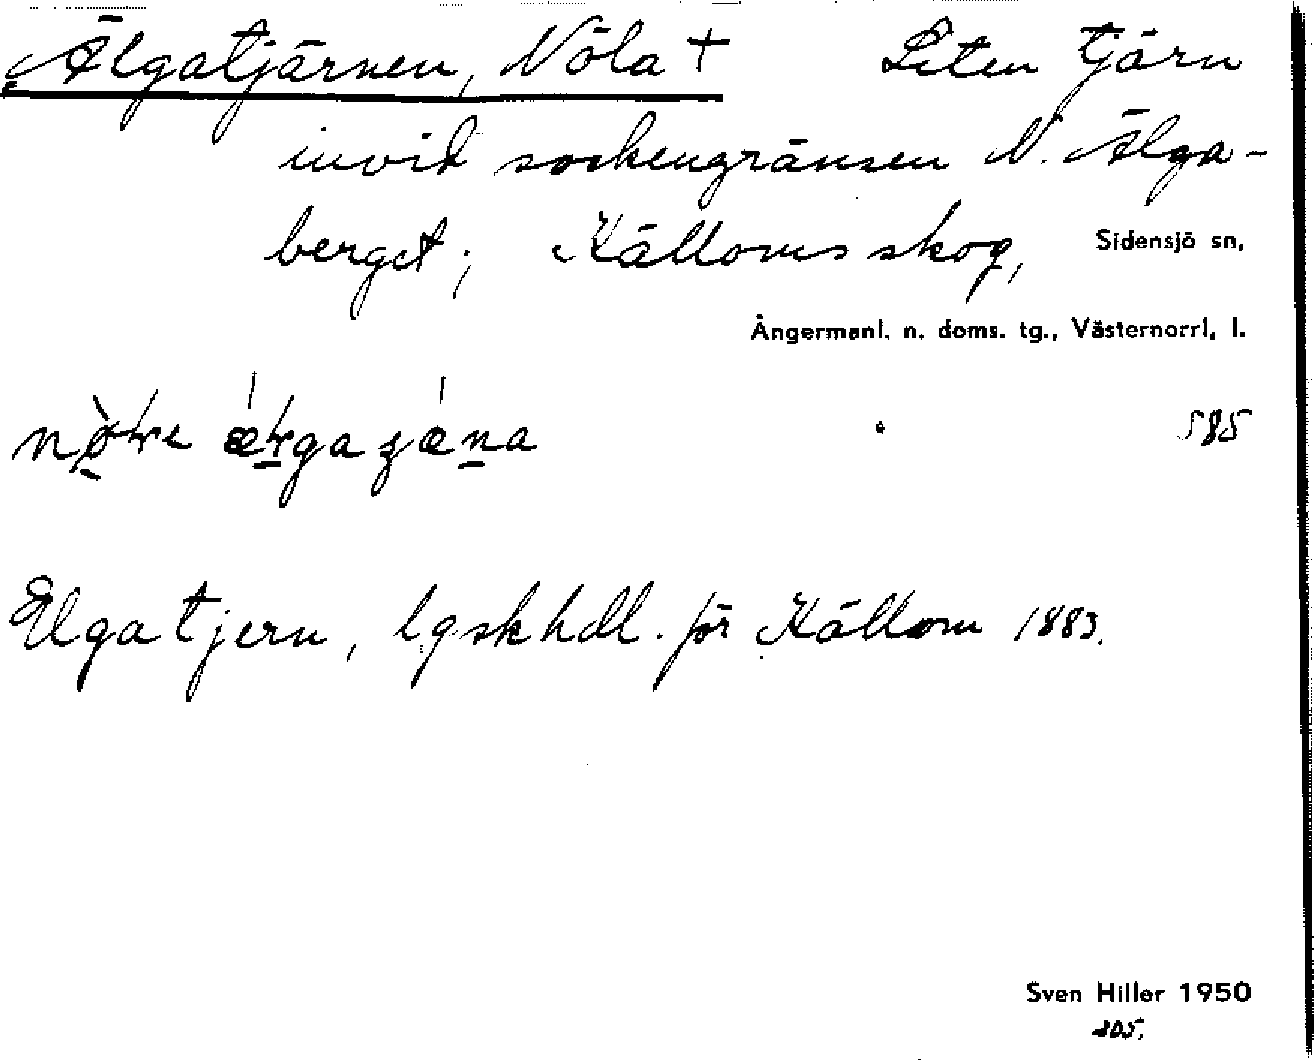 Älgatjärnen, Nöla + Liten tjärn
invid sockengränsen N. Älga-
berget; Källoms skog, Sidensjö sn,
Ångermanl. n. doms. tg., Västernorrl. l.
585
Elgatjern, lgskhdl. för Källom 1883.
Sven Hiller 1950
205.